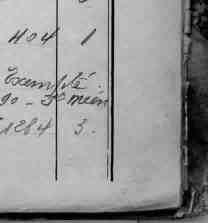 404 1
Exempté.
90 - 3e mém
1284 3.